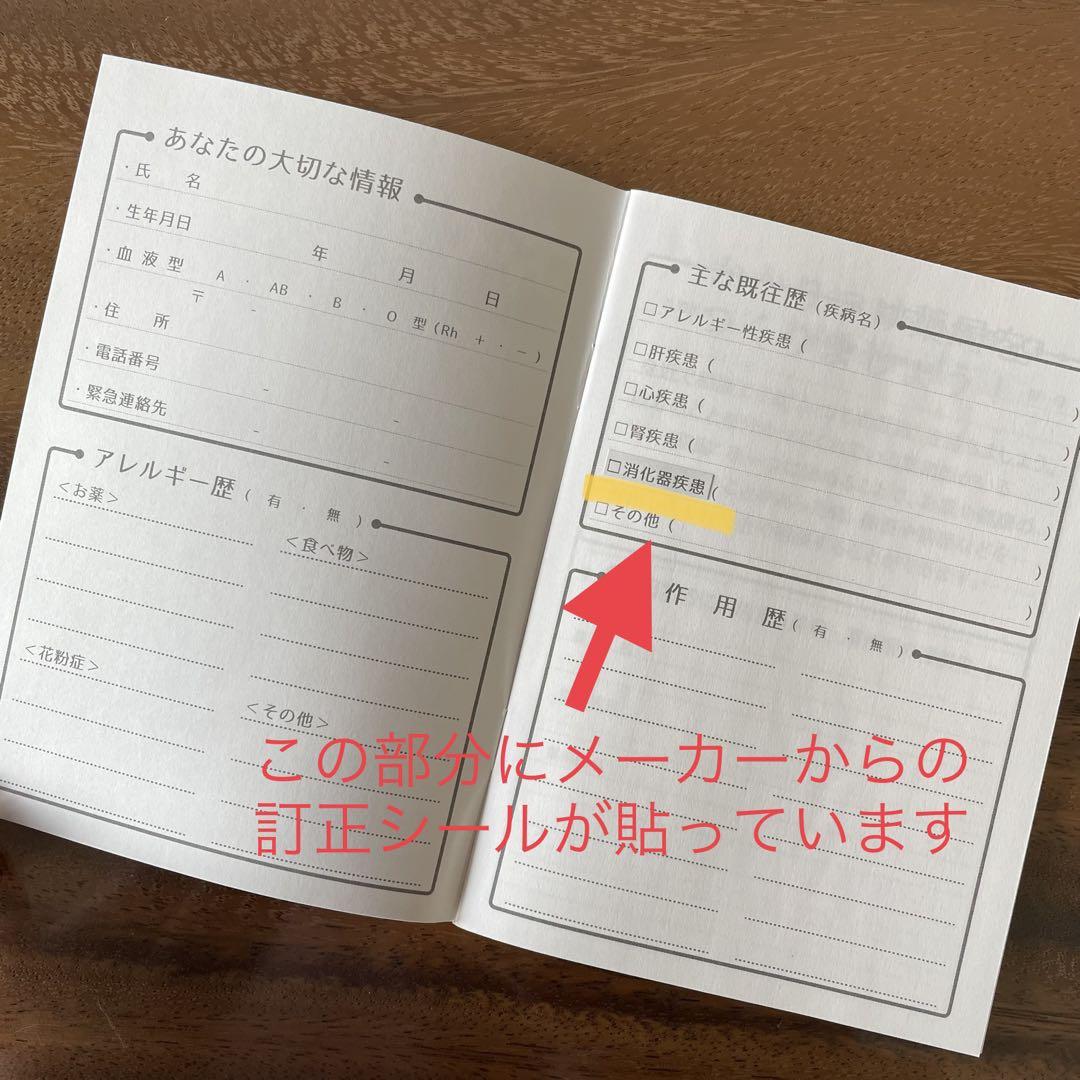 あなたの大切な情報
・氏　名
・生年月日　年　月　日
・血液型　A・AB・B・O 型（Rh ＋・－）
・住　所　〒　－
・電話番号　－　－
・緊急連絡先　－　－
アレルギー歴（有・無）
＜お薬＞
＜食べ物＞
＜花粉症＞
＜その他＞
主な既往歴（疾病名）
□アレルギー性疾患（　）
□肝疾患（　）
□心疾患（　）
□腎疾患（　）
□消化器疾患（　）
□その他（　）
作用歴（有・無）
この部分にメーカーからの
訂正シールが貼っています